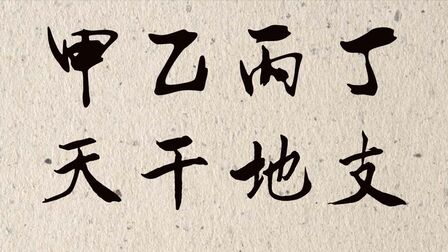 甲乙丙丁
天干地支